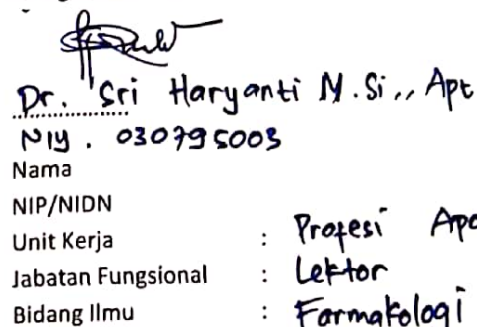 Dr. Sri Haryanti M.Si,, Apt
NIY. 030795003
Nama
NIP/NIDN
Unit Kerja : Profesi
Jabatan Fungsional : Lektor
Bidang Ilmu : Farmakologi